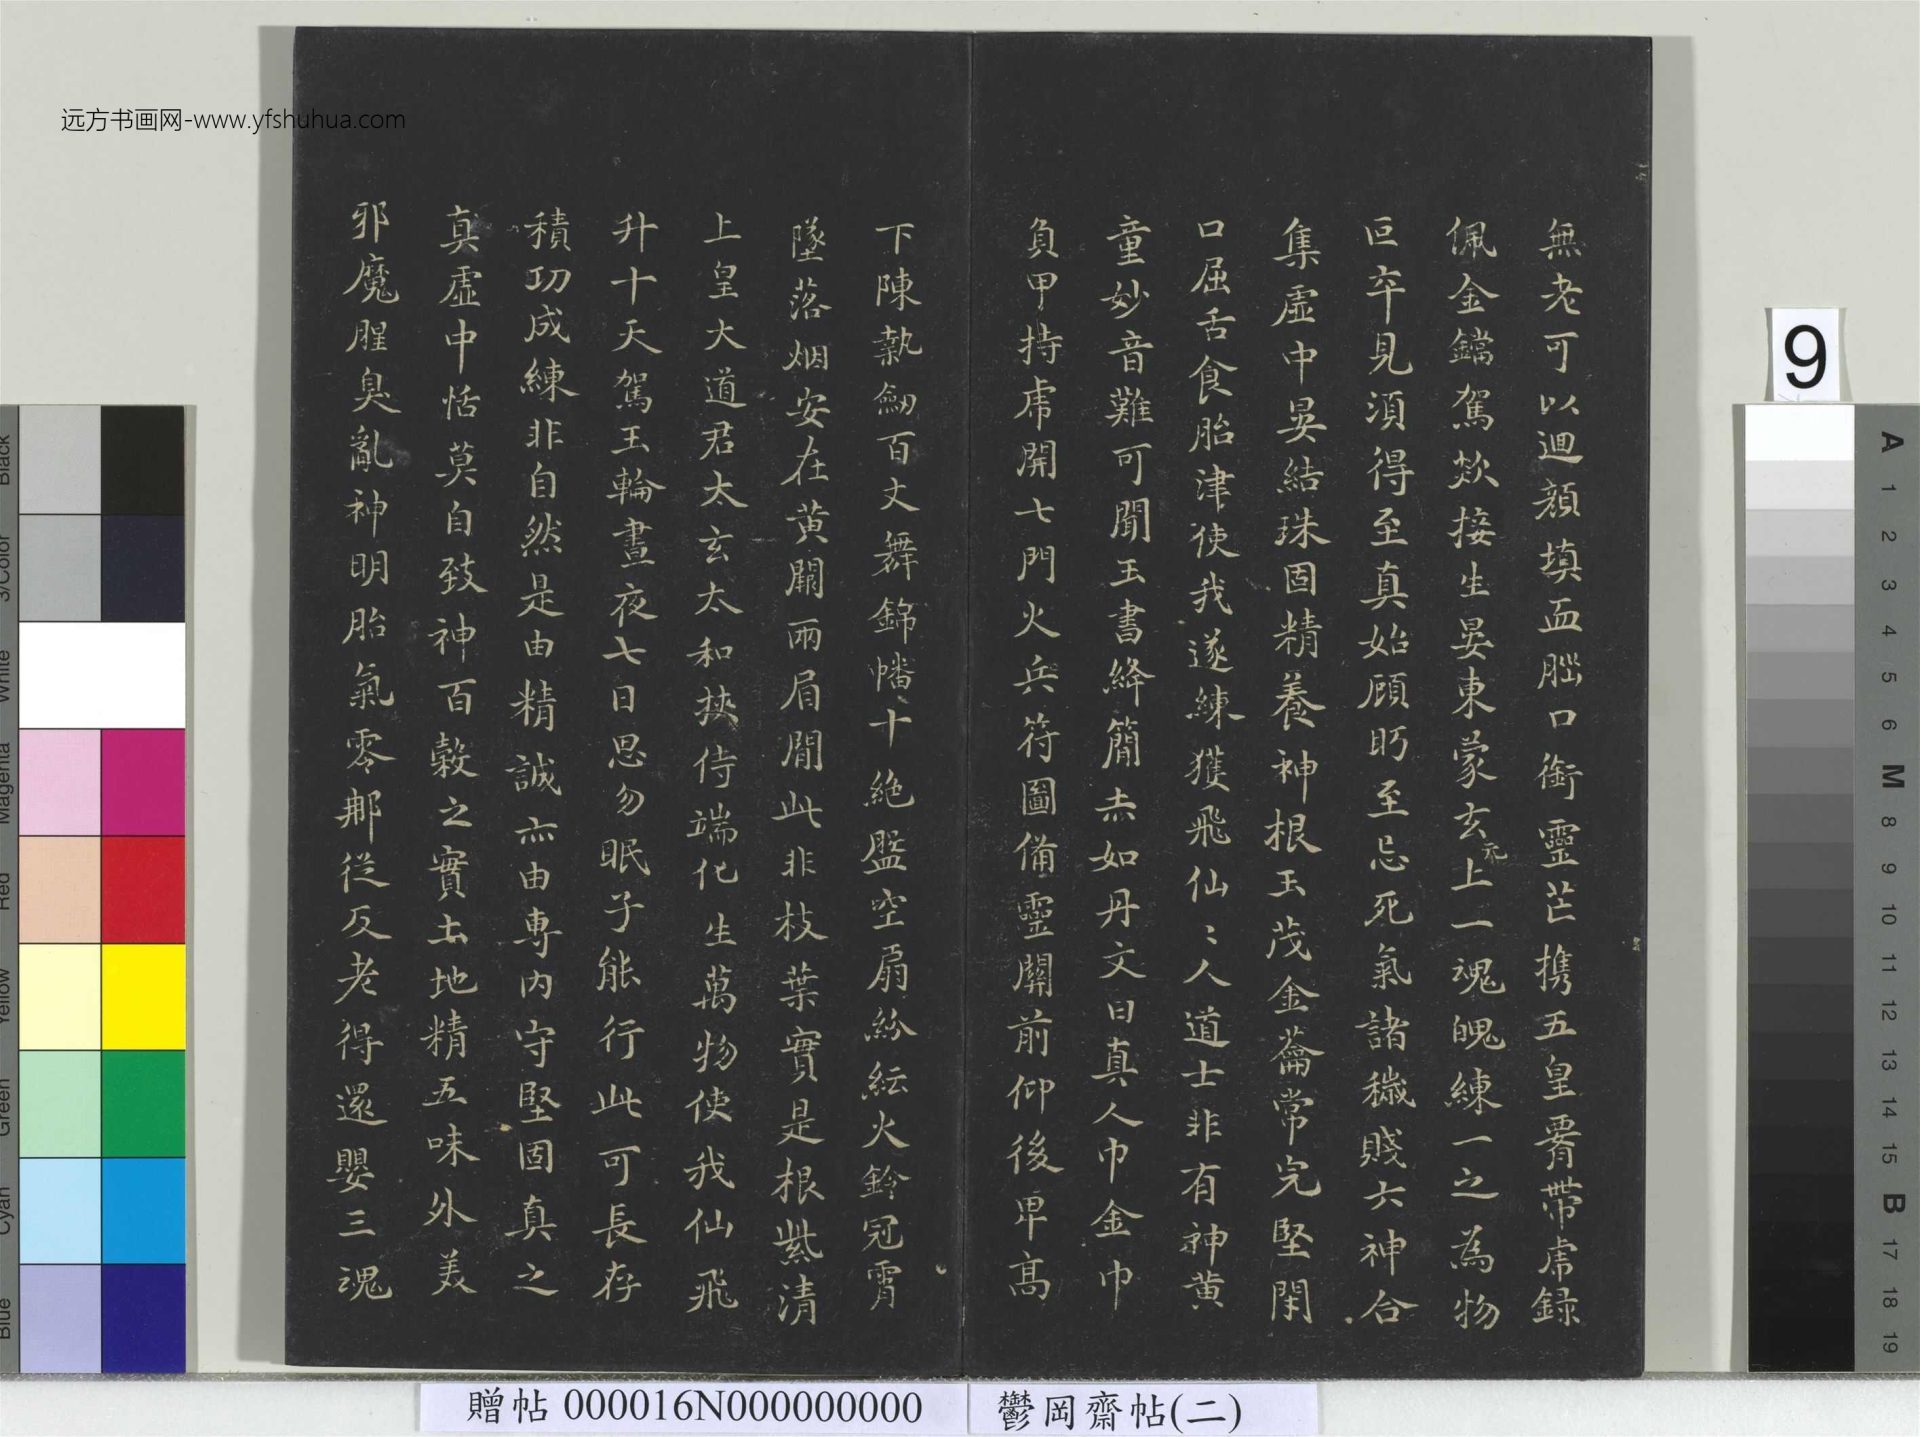 無老可以迴顏填血腦口銜靈芒攜五皇臂帶虎録
佩金鐺駕欻接生晏東蒙玄元上一魂魄練一之為物
叵卒見須得至真始顧眄至忌死氣諸穢賤六神合
集虛中晏結珠固精養神根玉茂金籥常完堅閑
口屈舌食胎津使我遂練獲飛仙〻人道士非有神黃
童妙音難可聞玉書絳簡赤如丹文曰真人巾金巾
負甲持虎開七門火兵符圖備靈關前仰後卑高
下陳執劔百丈舞錦幡十絕盤空扇紛紜火鈴冠霄
墜落烟安在黃闕兩眉閒此非枝葉實是根紫清
上皇大道君太玄太和挾侍端化生萬物使我仙飛
升十天駕玉輪晝夜七日思勿眠子能行此可長存
積功成練非自然是由精誠亦由專內守堅固真之
真虛中恬莫自致神百穀之實土地精五味外美
邪魔腥臭亂神明胎氣零那從反老得還嬰三魂
远方书画网-www.yfshuhua.com
9
Black
3/Color
White
Magenta
Red
Yellow
Green
Cyan
Blue
A
1
2
3
4
5
6
M
8
9
10
11
12
13
14
15
B
17
18
19
贈帖 000016N000000000
鬱岡齋帖(二)